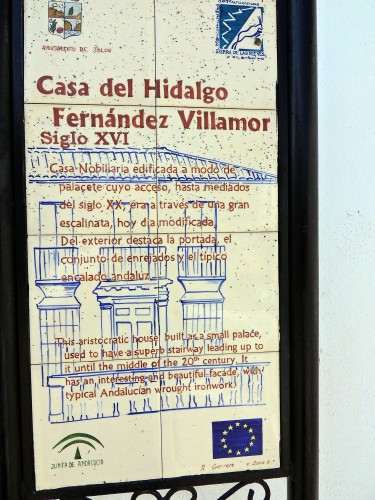 AYUNTAMIENTO DE TOLOX
SIERRA DE LAS NIEVES
Casa del Hidalgo
Fernández Villamor
Siglo XVI
Casa Nobiliaria edificada a modo de
palacete cuyo acceso, hasta mediados
del siglo XX, era a través de una gran
escalinata, hoy día modificada.
Del exterior destaca la portada, el
conjunto de enrejados y el típico
encalado andaluz.
This aristocratic house, built as a small palace,
used to have a superb stairway leading up to
it until the middle of the 20th century. It
has an interesting and beautiful facade, with
typical Andalucían wrought ironwork.
JUNTA DE ANDALUCIA